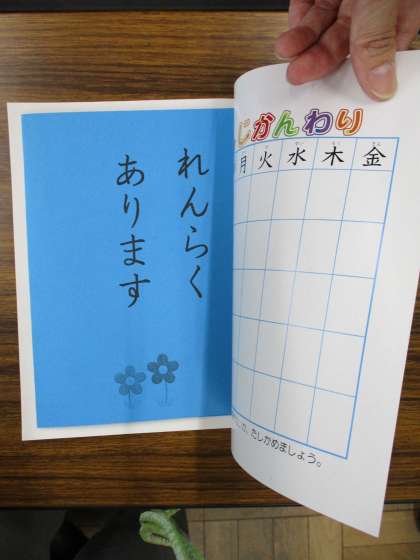 れんらく
あります
じかんわり
月 火 水 木 金
たしかめましょう。